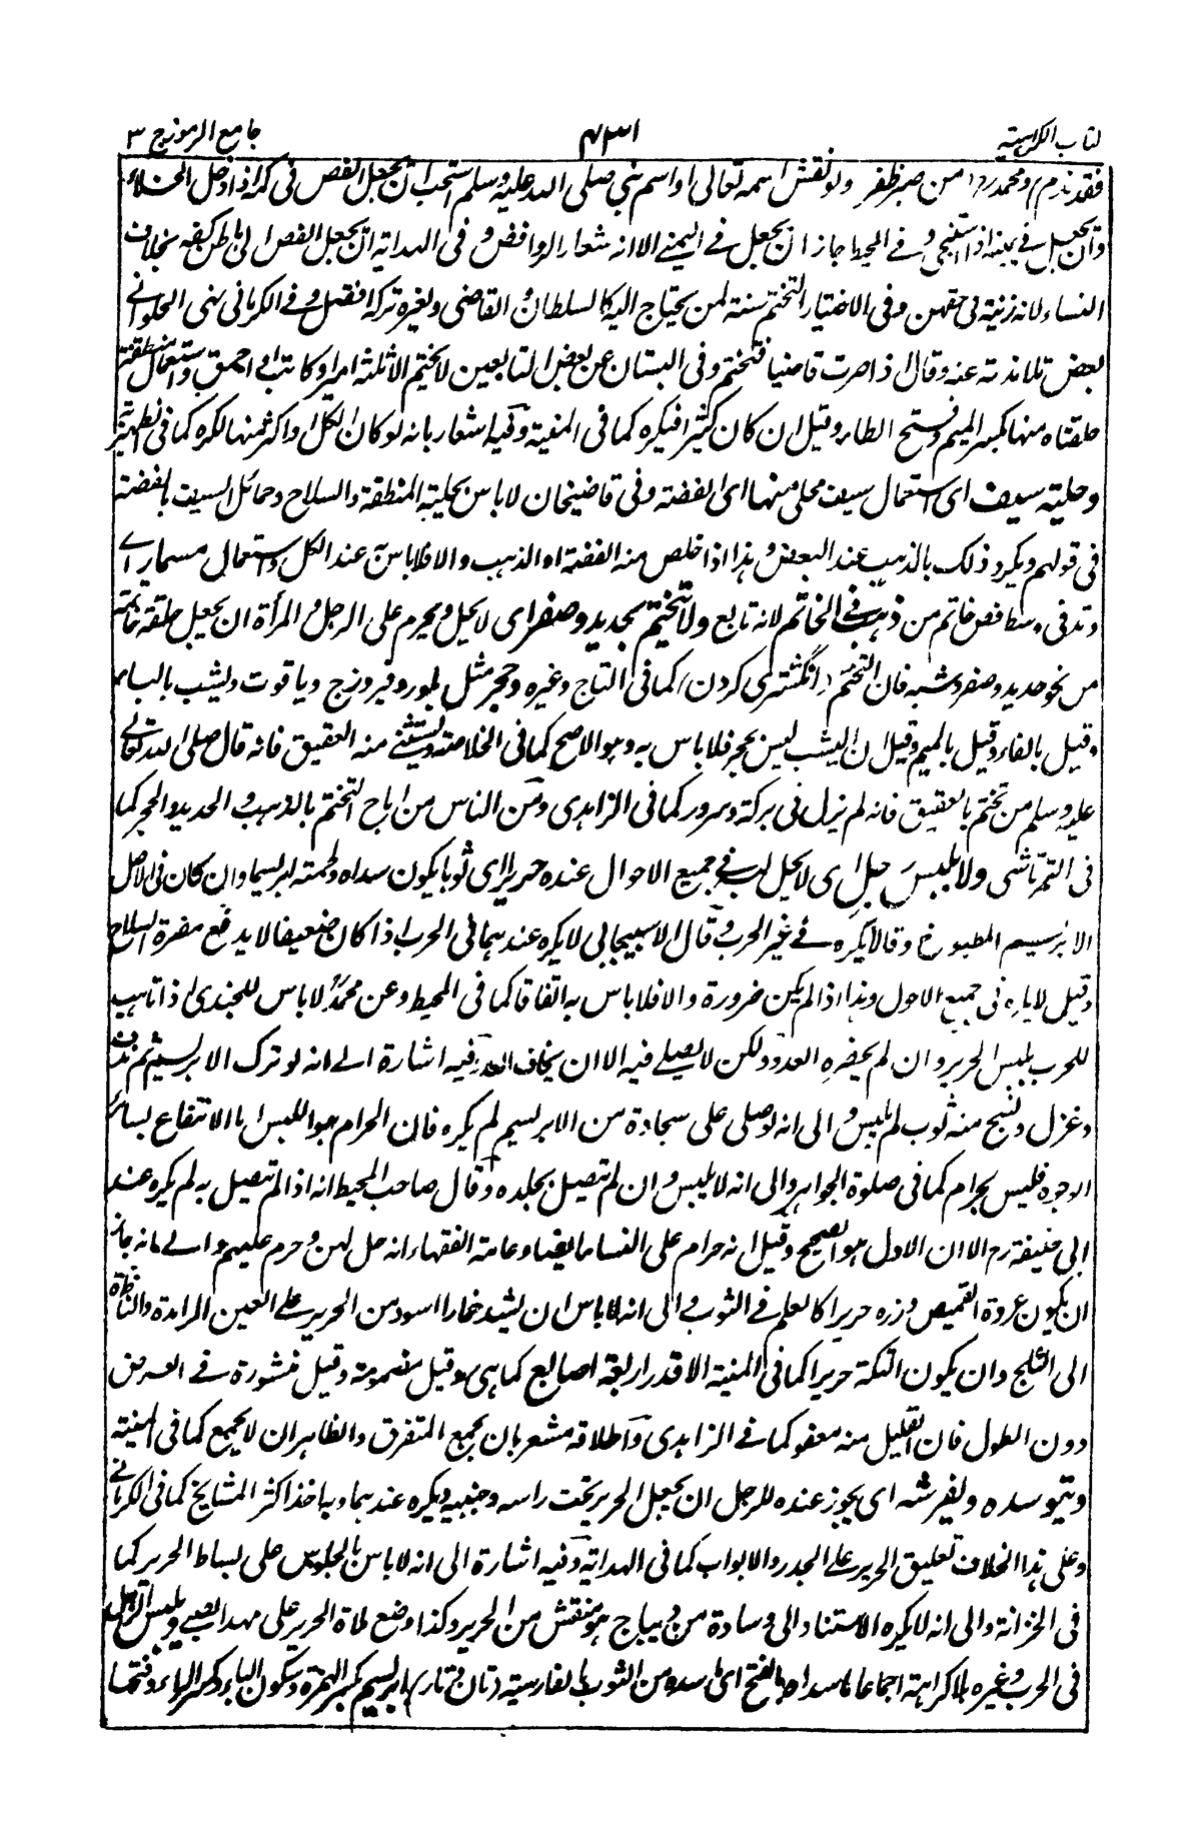 كتاب الكراهية
٤٣١
جامع الرموز ج ٣
فقد ندم ومحمد من صبر ظفر ولو نقش اسمه تعالى او اسم نبي صلى الله عليه وسلم استحب ان يجعل الفص في كمه اذا دخل الخلاء
وان يجعل في يمينه اذا استنجى وفي المحيط جاز ان يجعل في اليمنى الا انه شعار الروافض وفي الهداية ان يجعل الفص الى باطن كفه بخلاف
النساء لانه زينة في حقهن وفي الاختيار التختم سنة لمن يحتاج اليه كالسلطان والقاضي ولغيره تركه افضل وفي الكرماني نهى الحلواني
بعض تلامذته عنه وقال اذا صرت قاضيا فتختم وفي البستان عن بعض التابعين لا يختم الا ثلثة امير او كاتب او احمق واستعمال منطقة
حلقتاه منها بكسر الميم وفتح الطاء وقيل ان كان كثيرا فيكره كما في المنية وفيه اشعار بانه لو كان الكل او اكثر منها لكره كما في الظهيرية
وحلية سيف اى استعمال سيف محلى منها اى الفضة وفي قاضيخان لا باس بحلية المنطقة والسلاح وحمائل السيف بالفضة
في قولهم ويكره ذلك بالذهب عند البعض وهذا اذا خلص منه الفضة او الذهب والا فلا باس به عند الكل واستعمال مسمار اى
وتد في وسط فص خاتم من ذهب في الخاتم لانه تابع ولا يتختم بحديد وصفر اى لا يحل ويحرم على الرجل والمرأة ان يجعل حلقة خاتمه
من نحو حديد وصفر وشبه فان التختم (انگشترى كردن) كما في التاج وغيره وحجر مثل بلور وفيروزج وياقوت ويشب بالباء
وقيل بالفاء وقيل بالميم وقيل ان اليشب ليس بحجر فلا باس به وهو الاصح كما في الخلاصة ويستثنى منه العقيق فانه قال صلى الله تعالى
عليه وسلم من تختم بالعقيق فانه لم يزل في بركة وسرور كما في الزاهدى ومن الناس من اباح التختم بالذهب والحديد والحجر كما
في التمرتاشى ولا يلبس رجل اى لا يحل له في جميع الاحوال عنده حريرا اى ثوبا يكون سداه ولحمته ابريسما وان كان في الاصل
الابريسم المطبوخ وقالا يكره في غير الحرب وقال الاسبيجابى لا يكره عندهما في الحرب اذا كان ضعيفا لا يدفع مضرة السلاح
وقيل لا يكره في جميع الاحوال وهذا اذا لم يكن ضرورة والا فلا باس به اتفاقا كما في المحيط وعن محمد لا باس للجندى اذا تاهب
للحرب بلبس الحرير وان لم يحضره العدو ولكن لا يصلى فيه الا ان يخاف العدو فيه اشارة الى انه لو ترك الابريسم ثم
وغزل ونسج منه ثوب لم يلبس والى انه لو صلى على سجادة من الابريسم لم يكره فان الحرام هو اللبس اما الانتفاع بسائر
الوجوه فليس بحرام كما في صلوة الجواهر والى انه لا يلبس وان لم تتصل بجلده وقال صاحب المحيط انه اذا لم تتصل به لم يكره عند
ابى حنيفة رح الا ان الاول هو الصحيح وقيل انه حرام على النساء ايضا وعامة الفقهاء انه حل لهن وحرم عليهم والى انه جاز
ان يكون عروة القميص وزره حريرا كالعلم في الثوب والى انه لا باس ان يشد خمارا اسود من الحرير على العين الرامدة والناظرة
الى الثلج وان يكون التكة حريرا كما في المنية الا قدر اربعة اصابع كما هى وقيل مضمومة وقيل منشورة في العرض
دون الطول فان القليل منه معفو كما في الزاهدى واطلاقه مشعر بان يجمع المتفرق والظاهر ان لا يجمع كما في المنية
ويتوسده ويفرشه اى يجوز عنده للرجل ان يجعل الحرير تحت راسه وجنبيه ويكره عندهما وبه اخذ اكثر المشايخ كما في الكرماني
وعلى هذا الخلاف تعليق الحرير على الجدر والابواب كما في الهداية وفيه اشارة الى انه لا باس بالجلوس على بساط الحرير كما
في الخزانة والى انه لا يكره الاستناد الى وسادة من ديباج هو منقش من الحرير وكذا وضع ملاة الحرير على مهد الصبى ويلبس الرجل
في الحرب وغيره بلا كراهة اجماعا ما سداه بالفتح اى ما سده من الثوب بالفارسية (تان وتار) ابريسم بكسر الهمزة وسكون الباء وكسر الراء وفتحها